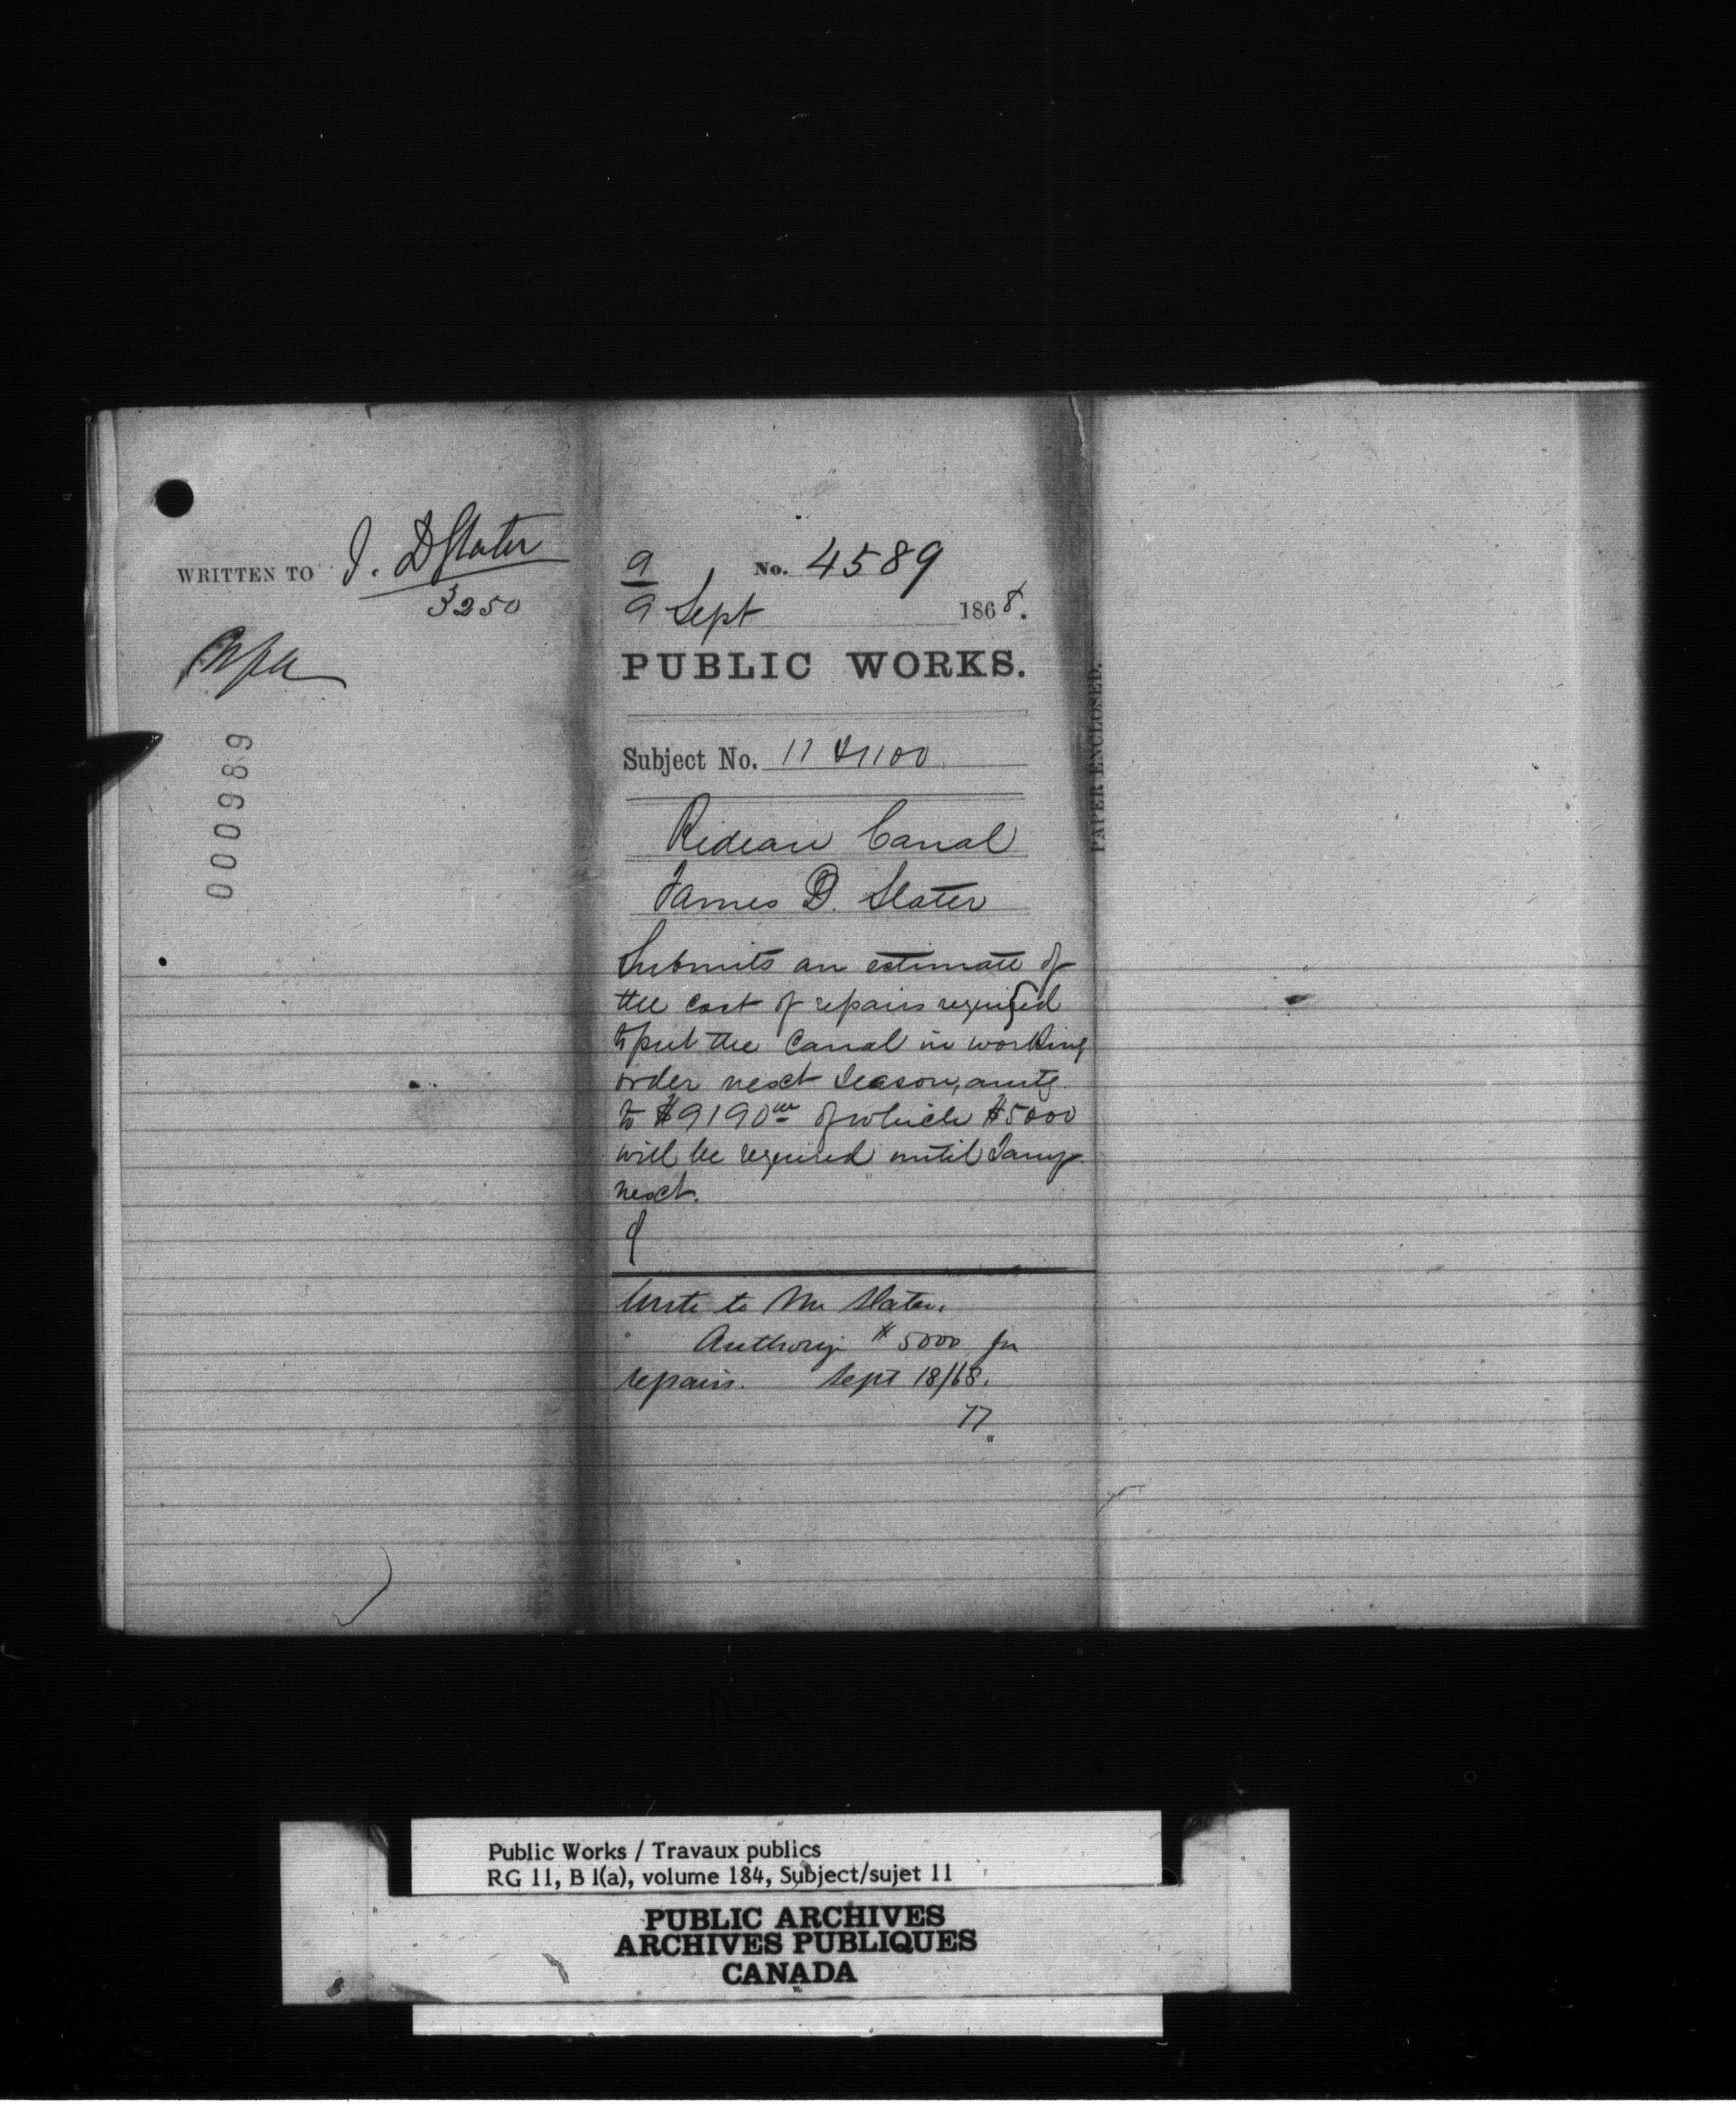 WRITTEN TO J. D Slater
3250
000989
9
9 Sept
No. 4589
1868.
PUBLIC WORKS.
Subject No. 11 & 1100
Rideau Canal
James D. Slater
Submits an estimate of
the cost of repairs required
to put the Canal in working
order next season, amtg
to $9190 of which $5000
will be required until Jany
next.
Write to Mr Slater.
Authorize $5000 for
repairs. Sept 18/68.
PAPER ENCLOSED.
Public Works / Travaux publics
RG 11, B 1(a), volume 184, Subject/sujet 11
PUBLIC ARCHIVES
ARCHIVES PUBLIQUES
CANADA